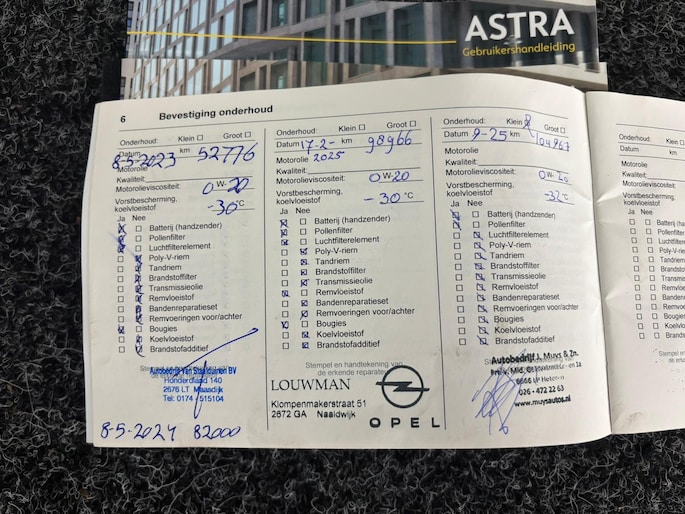 ASTRA
Gebruikershandleiding
6 Bevestiging onderhoud
Onderhoud: Klein Groot
Datum km
8-5-2023 52776
Motorolie
Kwaliteit:
Motorolieviscositeit: 0W-20
Vorstbescherming,
koelvloeistof -30°C
Ja Nee
Batterij (handzender)
Pollenfilter
Luchtfilterelement
Poly-V-riem
Tandriem
Brandstoffilter
Transmissieolie
Remvloeistof
Bandenreparatieset
Remvoeringen voor/achter
Bougies
Koelvloeistof
Brandstofadditief
Autobedrijf Van Staalduinen BV
Honderdland 140
2676 LT Maasdijk
Tel: 0174 - 515104
8-5-2024 82000
Onderhoud: Klein Groot
Datum 17-2- km 98966
Motorolie 2025
Kwaliteit:
Motorolieviscositeit: 0W-20
Vorstbescherming,
koelvloeistof -30°C
Ja Nee
Batterij (handzender)
Pollenfilter
Luchtfilterelement
Poly-V-riem
Tandriem
Brandstoffilter
Transmissieolie
Remvloeistof
Bandenreparatieset
Remvoeringen voor/achter
Bougies
Koelvloeistof
Brandstofadditief
Stempel en handtekening van
de erkende reparateur
LOUWMAN
Klompenmakerstraat 51
2672 GA Naaldwijk
OPEL
Onderhoud: Klein Groot
Datum 9-25 km
Motorolie
Kwaliteit:
Motorolieviscositeit: 0W-20
Vorstbescherming,
koelvloeistof -32°C
Ja Nee
Batterij (handzender)
Pollenfilter
Luchtfilterelement
Poly-V-riem
Tandriem
Brandstoffilter
Transmissieolie
Remvloeistof
Bandenreparatieset
Remvoeringen voor/achter
Bougies
Koelvloeistof
Brandstofadditief
Stempel en handtekening van
Autobedrijf J. Muys & Zn.
026 - 472 22 63
www.muysautos.nl
Onderhoud:
Datum
Motorolie
Kwaliteit:
Motorolieviscosit
Vorstbeschermin
koelvloeistof
Ja Nee
Batte
Polle